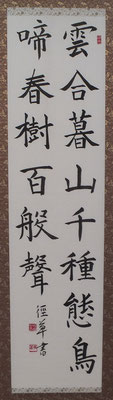 雲合暮山千種態鳥
啼春樹百般聲
徑草書